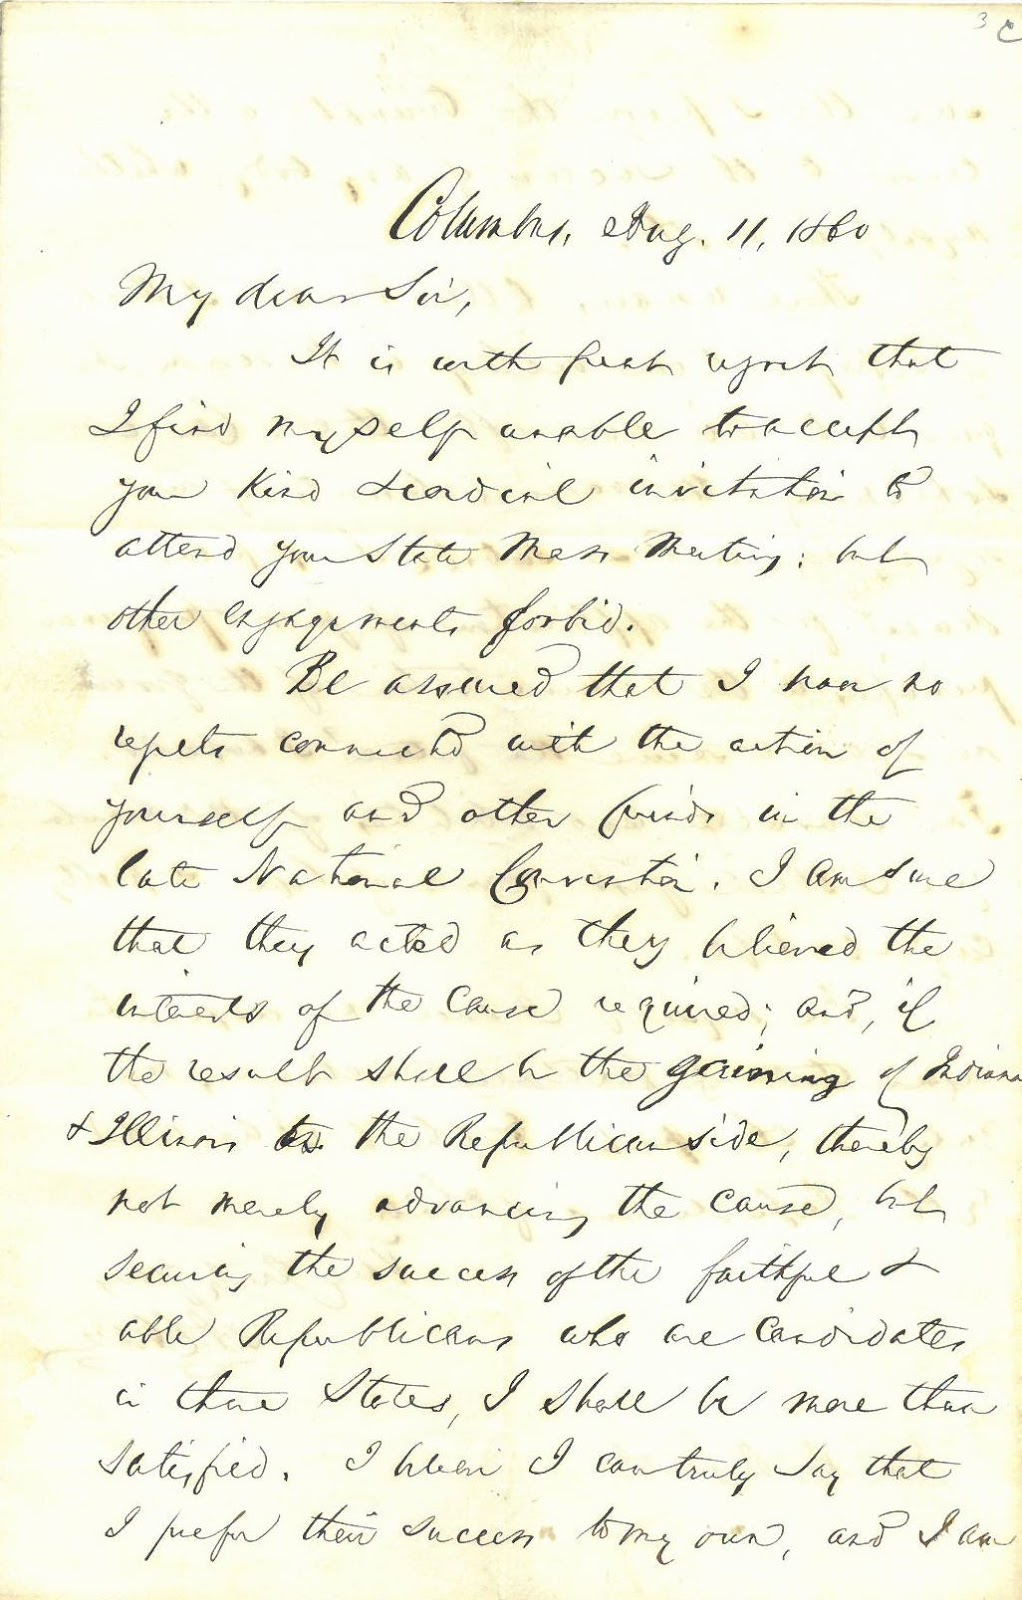 3 C
Columbus, Aug. 11, 1860
My dear Sir,
It is with great regret that
I find myself unable to accept
your kind & cordial invitation to
attend your State Mass Meeting: but
other engagements forbid.
Be assured that I have no
regrets connected with the action of
yourself and other friends in the
late National Convention. I am sure
that they acted as they believed the
interests of the cause required; and, if
the result shall be the gaining of Indiana
& Illinois to the Republican side, thereby
not merely advancing the cause, but
securing the success of the faithful &
able Republicans who are candidates
in those States, I shall be more than
satisfied. I believe I can truly say that
I prefer their success to my own, and I am